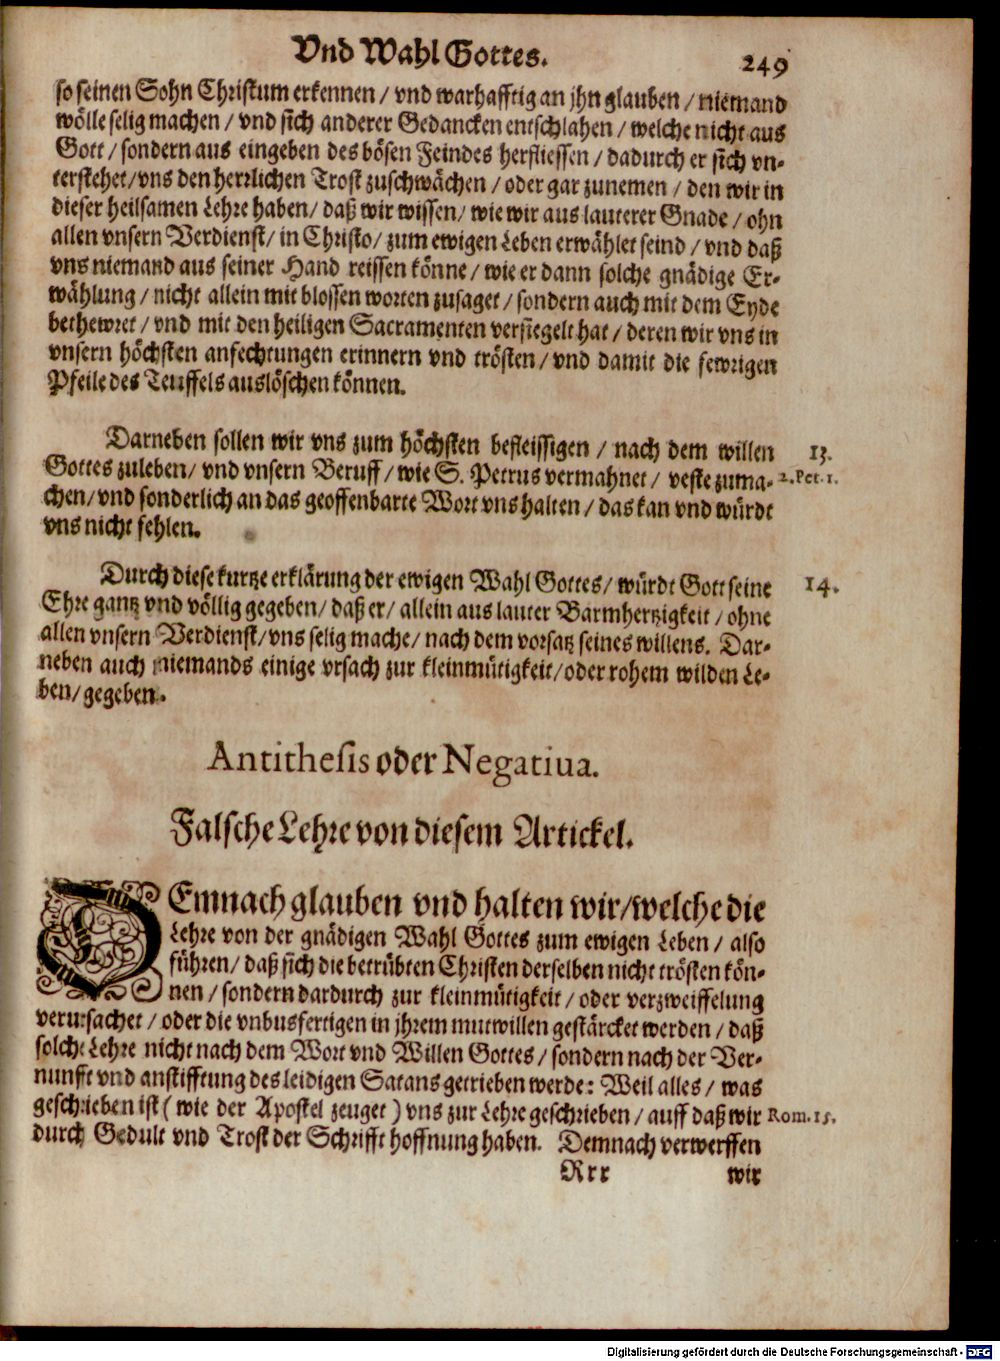 Vnd Wahl Gottes.
249
so seinen Sohn Christum erkennen / vnd warhafftig an jhn glauben / niemand
wölle selig machen / vnd sich anderer Gedancken entschlahen / welche nicht aus
Gott / sondern aus eingeben des bösen Feindes herfliessen / dadurch er sich vn-
terstehet / vns den herrlichen Trost zuschwächen / oder gar zunemen / den wir in
dieser heilsamen Lehre haben / daß wir wissen / wie wir aus lauterer Gnade / ohn
allen vnsern Verdienst / in Christo / zum ewigen Leben erwählet seind / vnd daß
vns niemand aus seiner Hand reissen könne / wie er dann solche gnädige Er-
wählung / nicht allein mit blossen worten zusaget / sondern auch mit dem Eyde
bethewret / vnd mit den heiligen Sacramenten versiegelt hat / deren wir vns in
vnsern höchsten anfechtungen erinnern vnd trösten / vnd damit die fewrigen
Pfeile des Teuffels auslöschen können.
Darneben sollen wir vns zum höchsten befleissigen / nach dem willen
13.
Gottes zuleben / vnd vnsern Beruff / wie S. Petrus vermahnet / veste zuma-
2. Pet. 1.
chen / vnd sonderlich an das geoffenbarte Wort vns halten / das kan vnd würdt
vns nicht fehlen.
Durch diese kurtze erklärung der ewigen Wahl Gottes / würdt Gott seine
14.
Ehre gantz vnd völlig gegeben / daß er / allein aus lauter Barmhertzigkeit / ohne
allen vnsern Verdienst / vns selig mache / nach dem vorsatz seines willens. Dar-
neben auch niemands einige vrsach zur kleinmütigkeit / oder rohem wilden Le-
ben / gegeben.
Antithesis oder Negatiua.
Falsche Lehre von diesem Artickel.
DEmnach glauben vnd halten wir / welche die
Lehre von der gnädigen Wahl Gottes zum ewigen Leben / also
führen / daß sich die betrübten Christen derselben nicht trösten kön-
nen / sondern dardurch zur kleinmütigkeit / oder verzweiffelung
verursachet / oder die vnbusfertigen in jhrem mutwillen gestärcket werden / daß
solche Lehre nicht nach dem Wort vnd Willen Gottes / sondern nach der Ver-
nunfft vnd anstifftung des leidigen Satans getrieben werde: Weil alles / was
geschrieben ist ( wie der Apostel zeuget ) vns zur Lehre geschrieben / auff daß wir
Rom. 15.
durch Gedult vnd Trost der Schrifft hoffnung haben. Demnach verwerffen
Rrr
wir
Digitalisierung gefördert durch die Deutsche Forschungsgemeinschaft - DFG